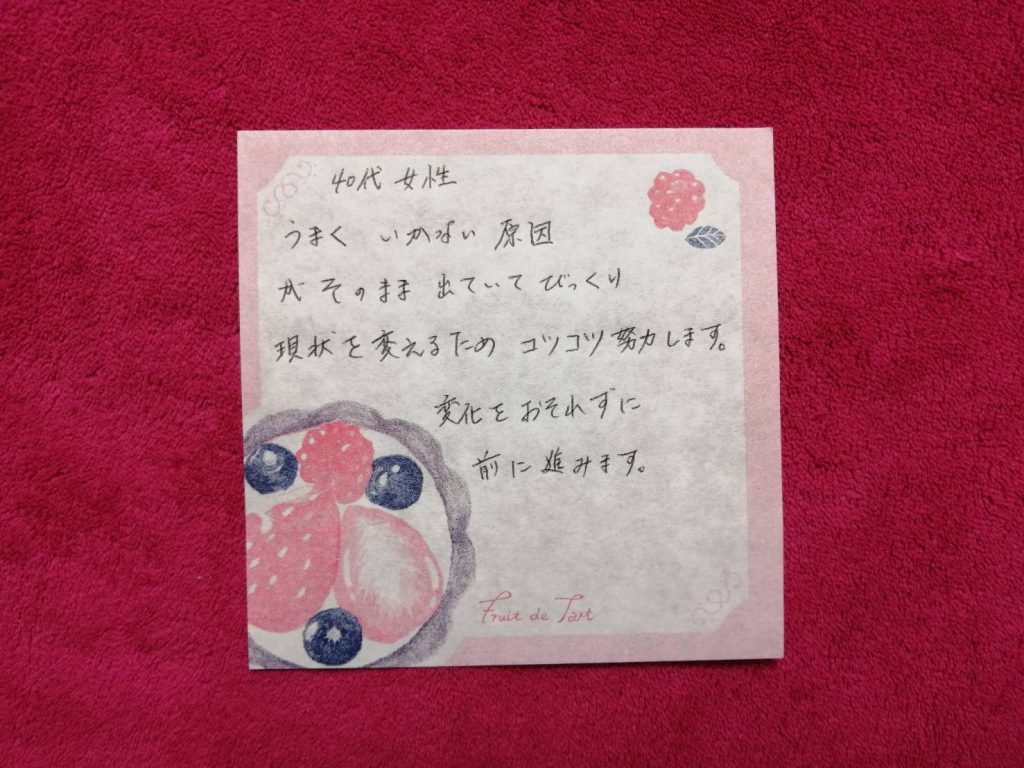 40代 女性
うまく いかない 原因
が そのまま 出ていて びっくり
現状を変えるため コツコツ努力します。
変化をおそれずに
前に進みます。
Fruit de Tart